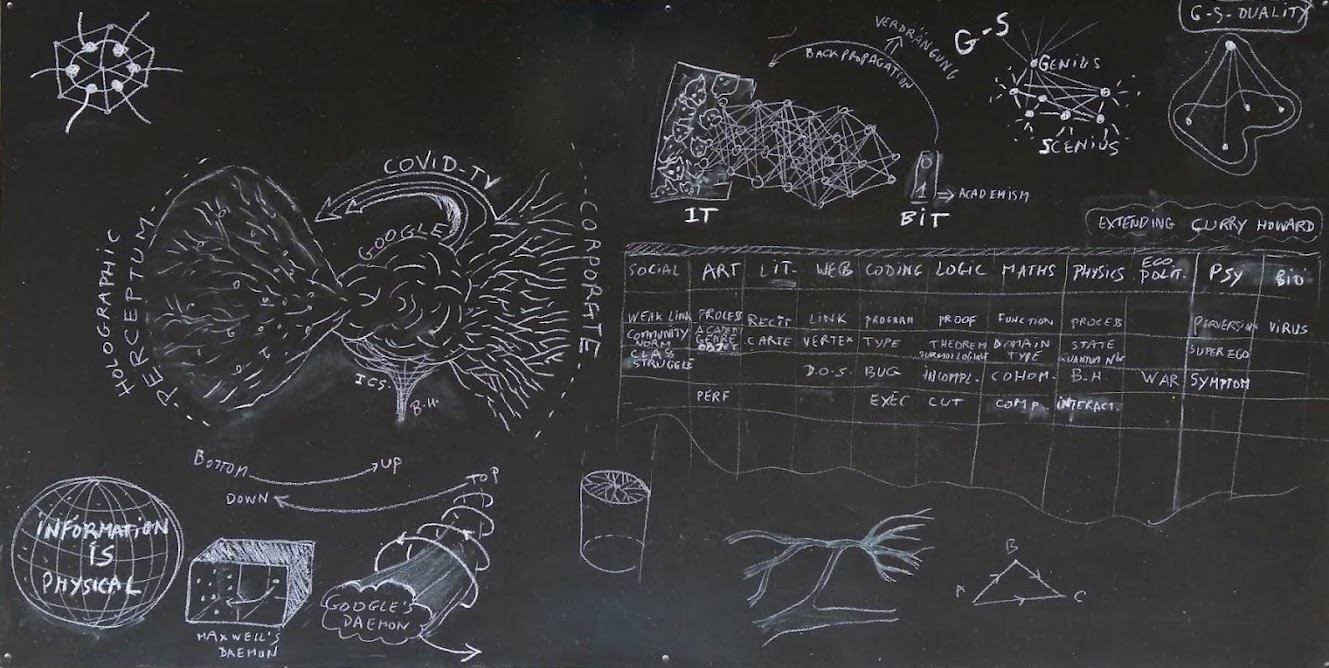 COVID-TV
GOOGLE
HOLOGRAPHIC
PERCEPTUM
CORPORATE
ICS.
B.H.
BOTTOM
UP
DOWN
TOP
INFORMATION
IS
PHYSICAL
MAXWELL'S
DAEMON
GOOGLE'S
DAEMON
VERDRÄNGUNG
BACKPROPAGATION
IT
BIT
0
1
ACADEMISM
G-S
GENIUS
SCENIUS
G-S-DUALITY
EXTENDING CURRY HOWARD
SOCIAL ART LIT. WEB CODING LOGIC MATHS PHYSICS ECO. POLIT. PSY BIO
WEAK LINK PROCESS RECIT LINK PROGRAM PROOF FUNCTION PROCESS PERVERSION VIRUS
COMMUNITY NORM ACADEMY GENRE OBJET CARTE VERTEX TYPE THEOREM DOMAIN TYPE STATE SUPEREGO
CLASS STRUGGLE D.O.S. BUG INCOMPL. COHOM. B.H. WAR SYMPTOM
PERF EXEC CUT COMP. INTERACT.
B
A
C